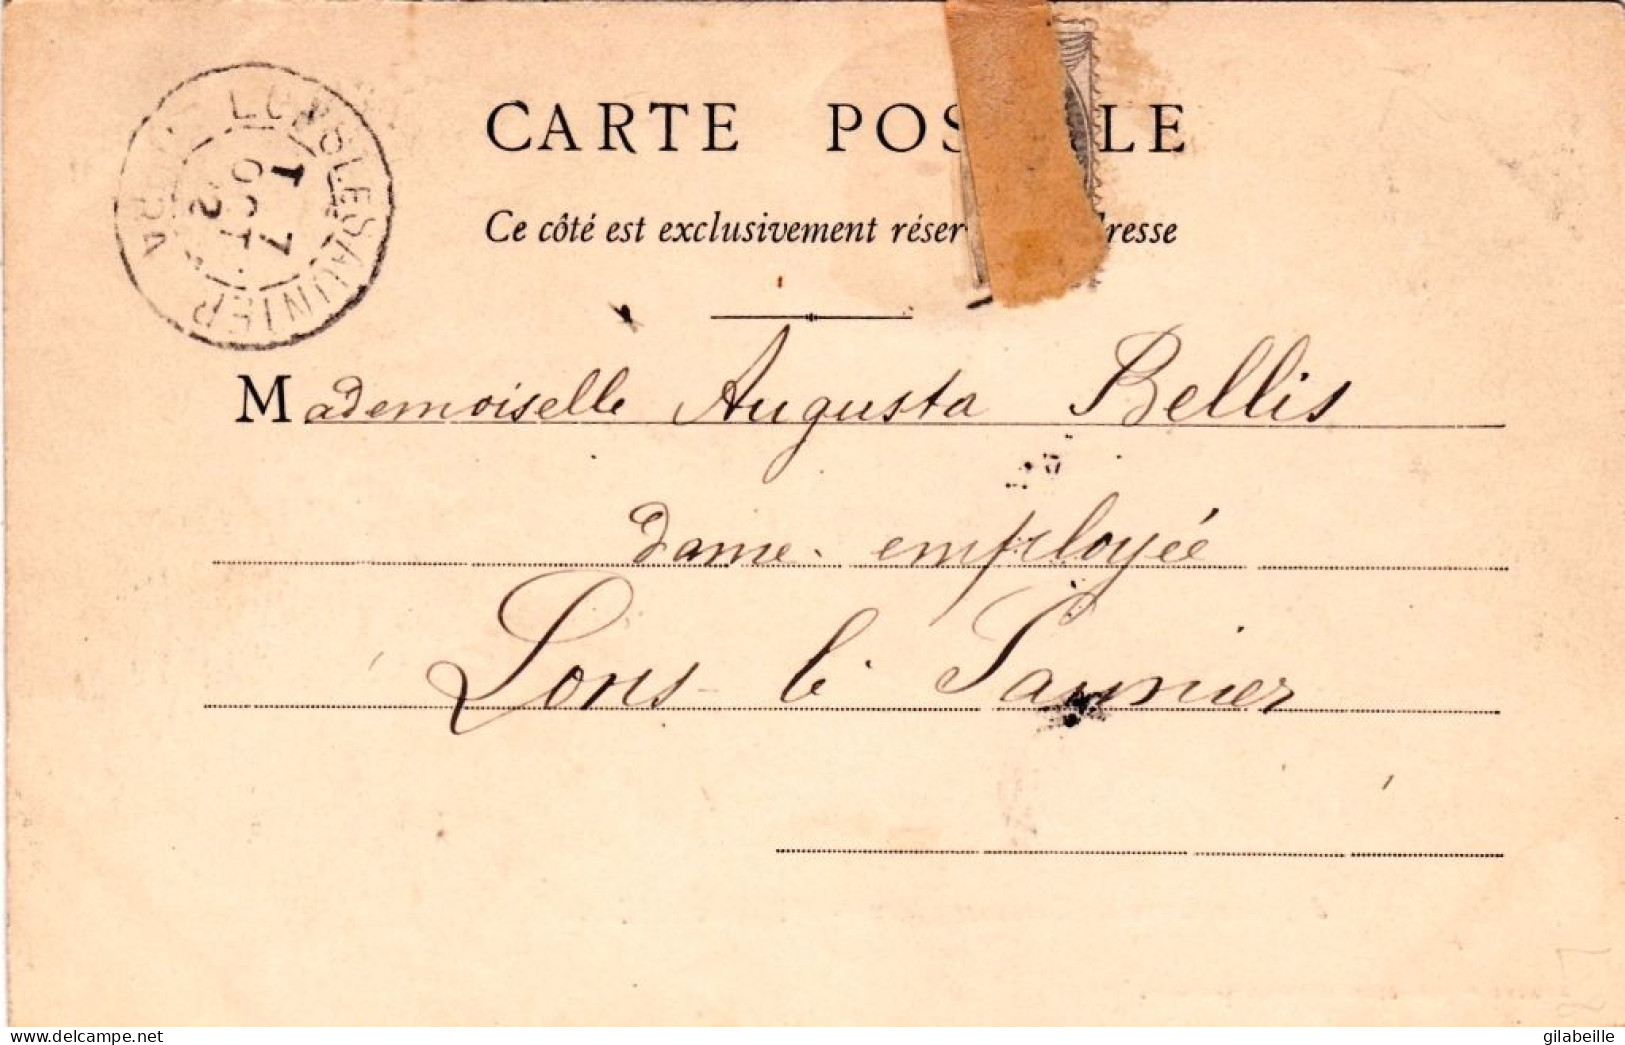 CARTE POS LE
Ce côté est exclusivement réser resse
LONS LE SAUNIER
OCT
Mademoiselle Augusta Bellis
dame employée
Lons le Saunier
www.delcampe.net
gilabeille